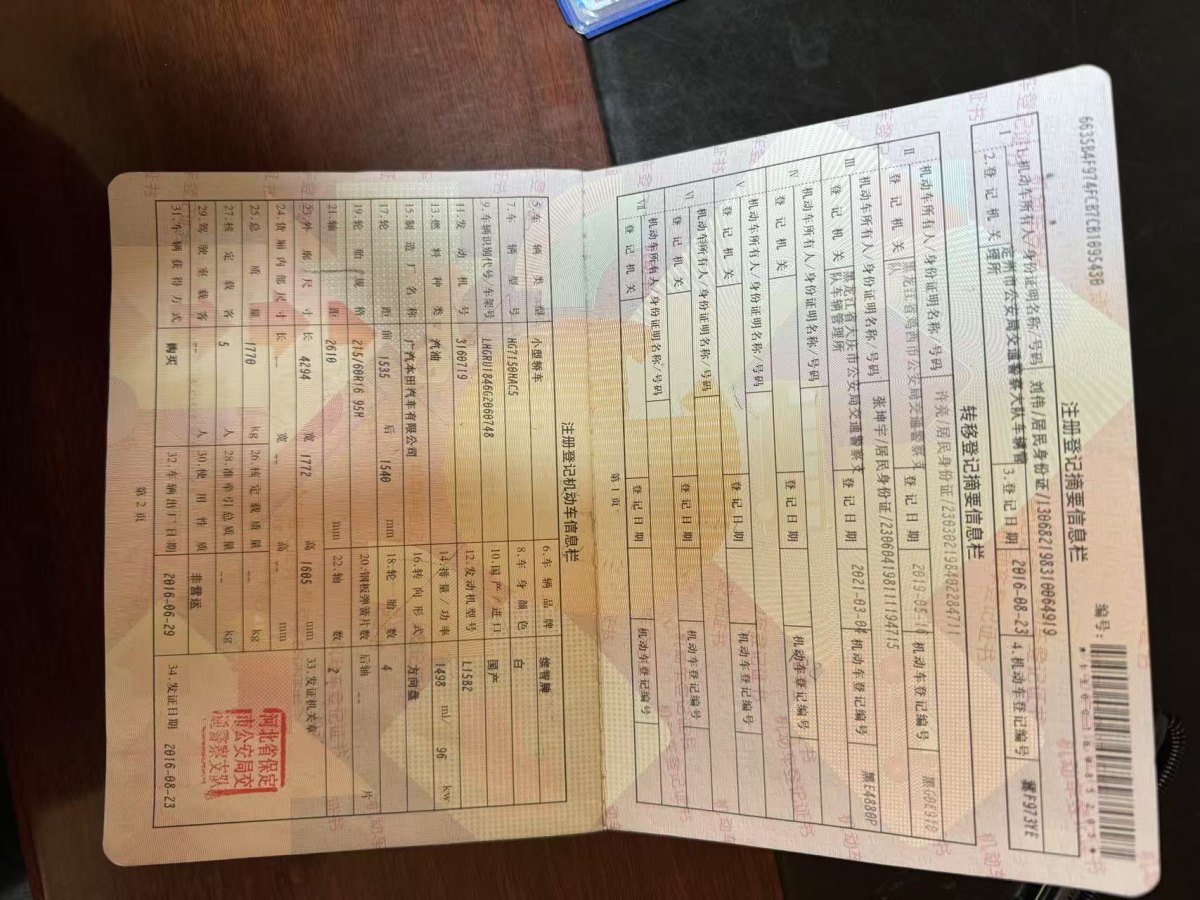 6635B4F974FC87CB1095430
注册登记摘要信息栏
编号:
I
1.机动车所有人/身份证明名称/号码 刘伟/居民身份证/130682198310064919
2.登记机关 定州市公安局交通警察大队车辆管理所 3.登记日期 2016-08-23 4.机动车登记编号
转移登记摘要信息栏
II
机动车所有人/身份证明名称/号码 许亮/居民身份证/230302198402284711
登记机关 黑龙江省鸡西市公安局交通警察支队 登记日期 机动车登记编号
III
机动车所有人/身份证明名称/号码 张坤宇/居民身份证/230604198111194715
登记机关 黑龙江省大庆市公安局交通警察支队车辆管理所 登记日期 2021-03-04 机动车登记编号 黑E4880P
IV
机动车所有人/身份证明名称/号码
登记机关 登记日期 机动车登记编号
V
机动车所有人/身份证明名称/号码
登记机关 登记日期 机动车登记编号
VI
机动车所有人/身份证明名称/号码
登记机关 登记日期 机动车登记编号
VII
机动车所有人/身份证明名称/号码
登记机关 登记日期 机动车登记编号
第1页
注册登记机动车信息栏
5.车辆类型 小型轿车 6.车辆品牌 缤智牌
7.车辆型号 HG7150HAC5 8.车身颜色 白
9.车辆识别代号/车架号 LHGRU1846G2060748 10.国产/进口 国产
11.发动机号 3160719 12.发动机型号 L15B2
13.燃料种类 汽油 14.排量/功率 1498 ml/ 96 kw
15.制造厂名称 广汽本田汽车有限公司 16.转向形式 方向盘
17.轮距 前 1535 后 1540 mm 18.轮胎数 4
19.轮胎规格 215/60R16 95H 20.钢板弹簧片数 后轴 -- 片
21.轴距 2610 mm 22.轴数 2
23.外廓尺寸 长 4294 宽 1772 高 1605 mm 33.发证机关章
24.货厢内部尺寸 长 -- 宽 -- 高 -- mm
25.总质量 1770 kg 26.核定载质量 -- kg
27.核定载客 5 人 28.准牵引总质量 -- kg
29.驾驶室载客 -- 人 30.使用性质 非营运
31.车辆获得方式 购买 32.车辆出厂日期 2016-06-29 34.发证日期 2016-08-23
河北省保定
市公安局交
通警察支队
第2页